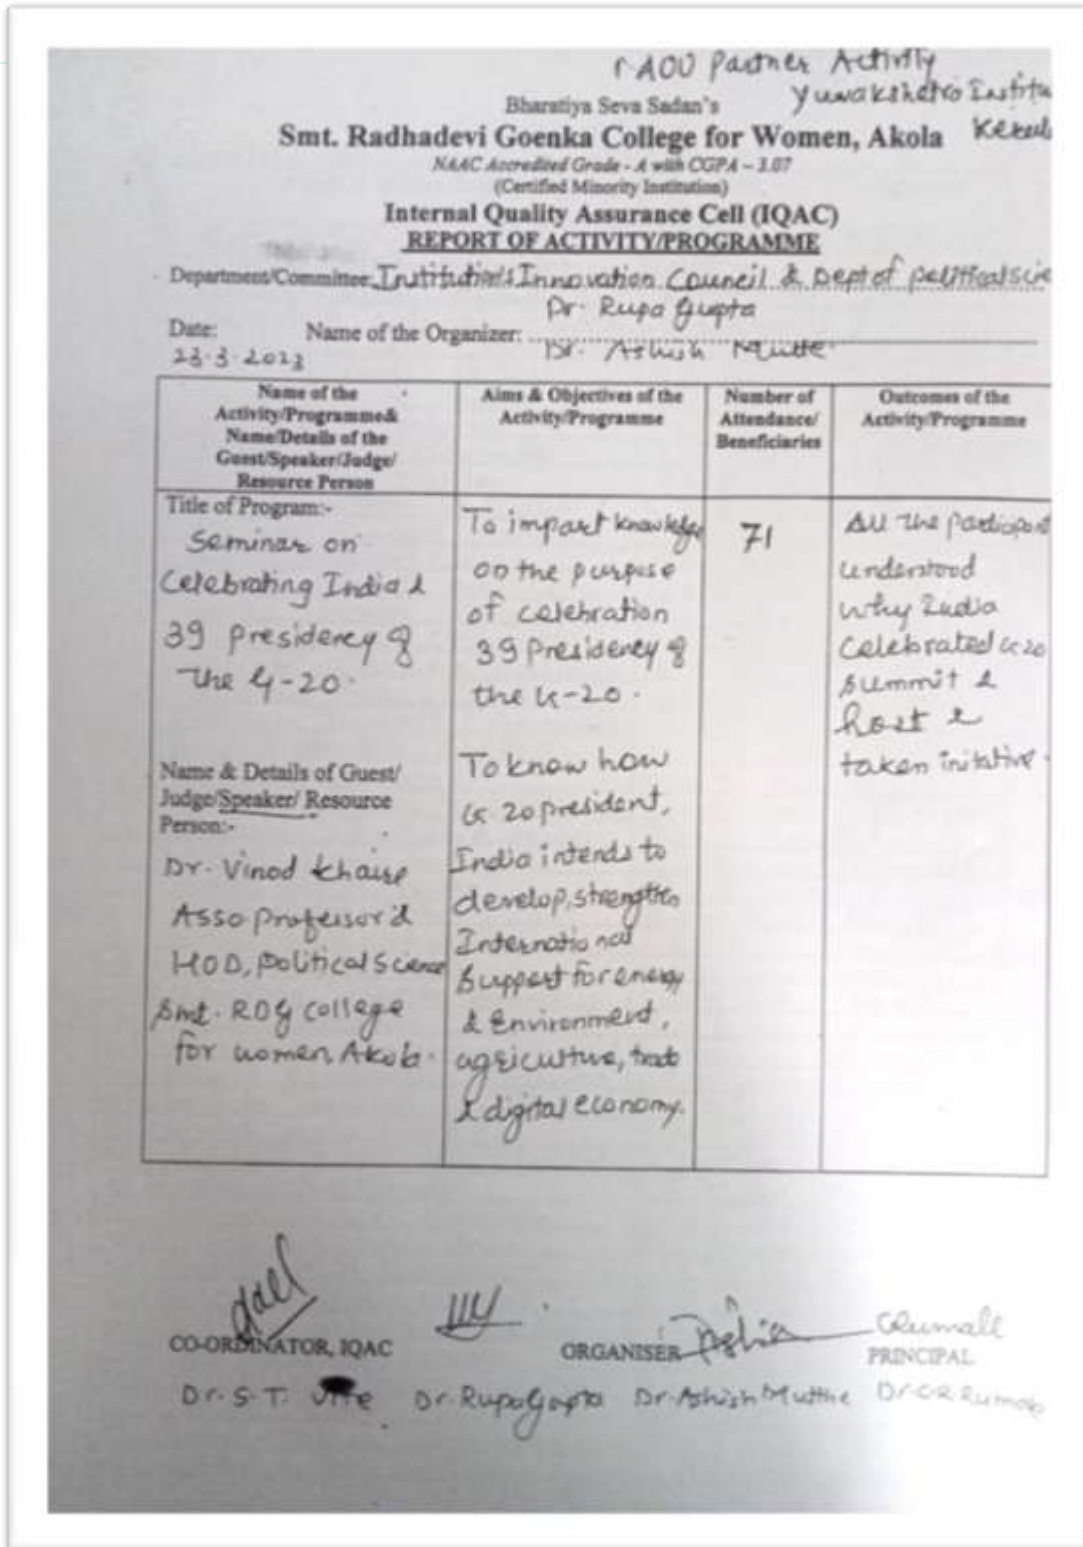 MOU Partner Activity
Yuvakshetra Institu
Bharatiya Seva Sadan's
Smt. Radhadevi Goenka College for Women, Akola
NAAC Accredited Grade - A with CGPA – 3.07
(Certified Minority Institution)
Internal Quality Assurance Cell (IQAC)
REPORT OF ACTIVITY/PROGRAMME
Department/Committee: Institution's Innovation Council & Dept of political sci
Dr. Rupa Gupta
Date: Name of the Organizer:
Dr. Ashish Mutthe
23.3.2023
Name of the
Activity/Programme&
Name/Details of the
Guest/Speaker/Judge/
Resource Person
Aims & Objectives of the
Activity/Programme
Number of
Attendance/
Beneficiaries
Outcomes of the
Activity/Programme
Title of Program:-
Seminar on
Celebrating India &
39 presidency of
the G-20.
Name & Details of Guest/
Judge/Speaker/ Resource
Person:-
Dr. Vinod Khaire
Asso. professor &
HOD, political Science
Smt. RDG College
for women, Akola.
To impart knowledge
on the purpose
of celebration
39 Presidency of
the G-20.
To know how
G 20 president,
India intends to
develop, strengthen
International
Support for energy
& Environment,
agriculture, trade
& digital economy.
71
All the participant
understood
why India
Celebrated G 20
summit &
host &
taken initative.
CO-ORDINATOR, IQAC
ORGANISER
PRINCIPAL
Dr. S. T. Dr. Rupa Gupta Dr. Ashish Mutthe Dr. C. R.